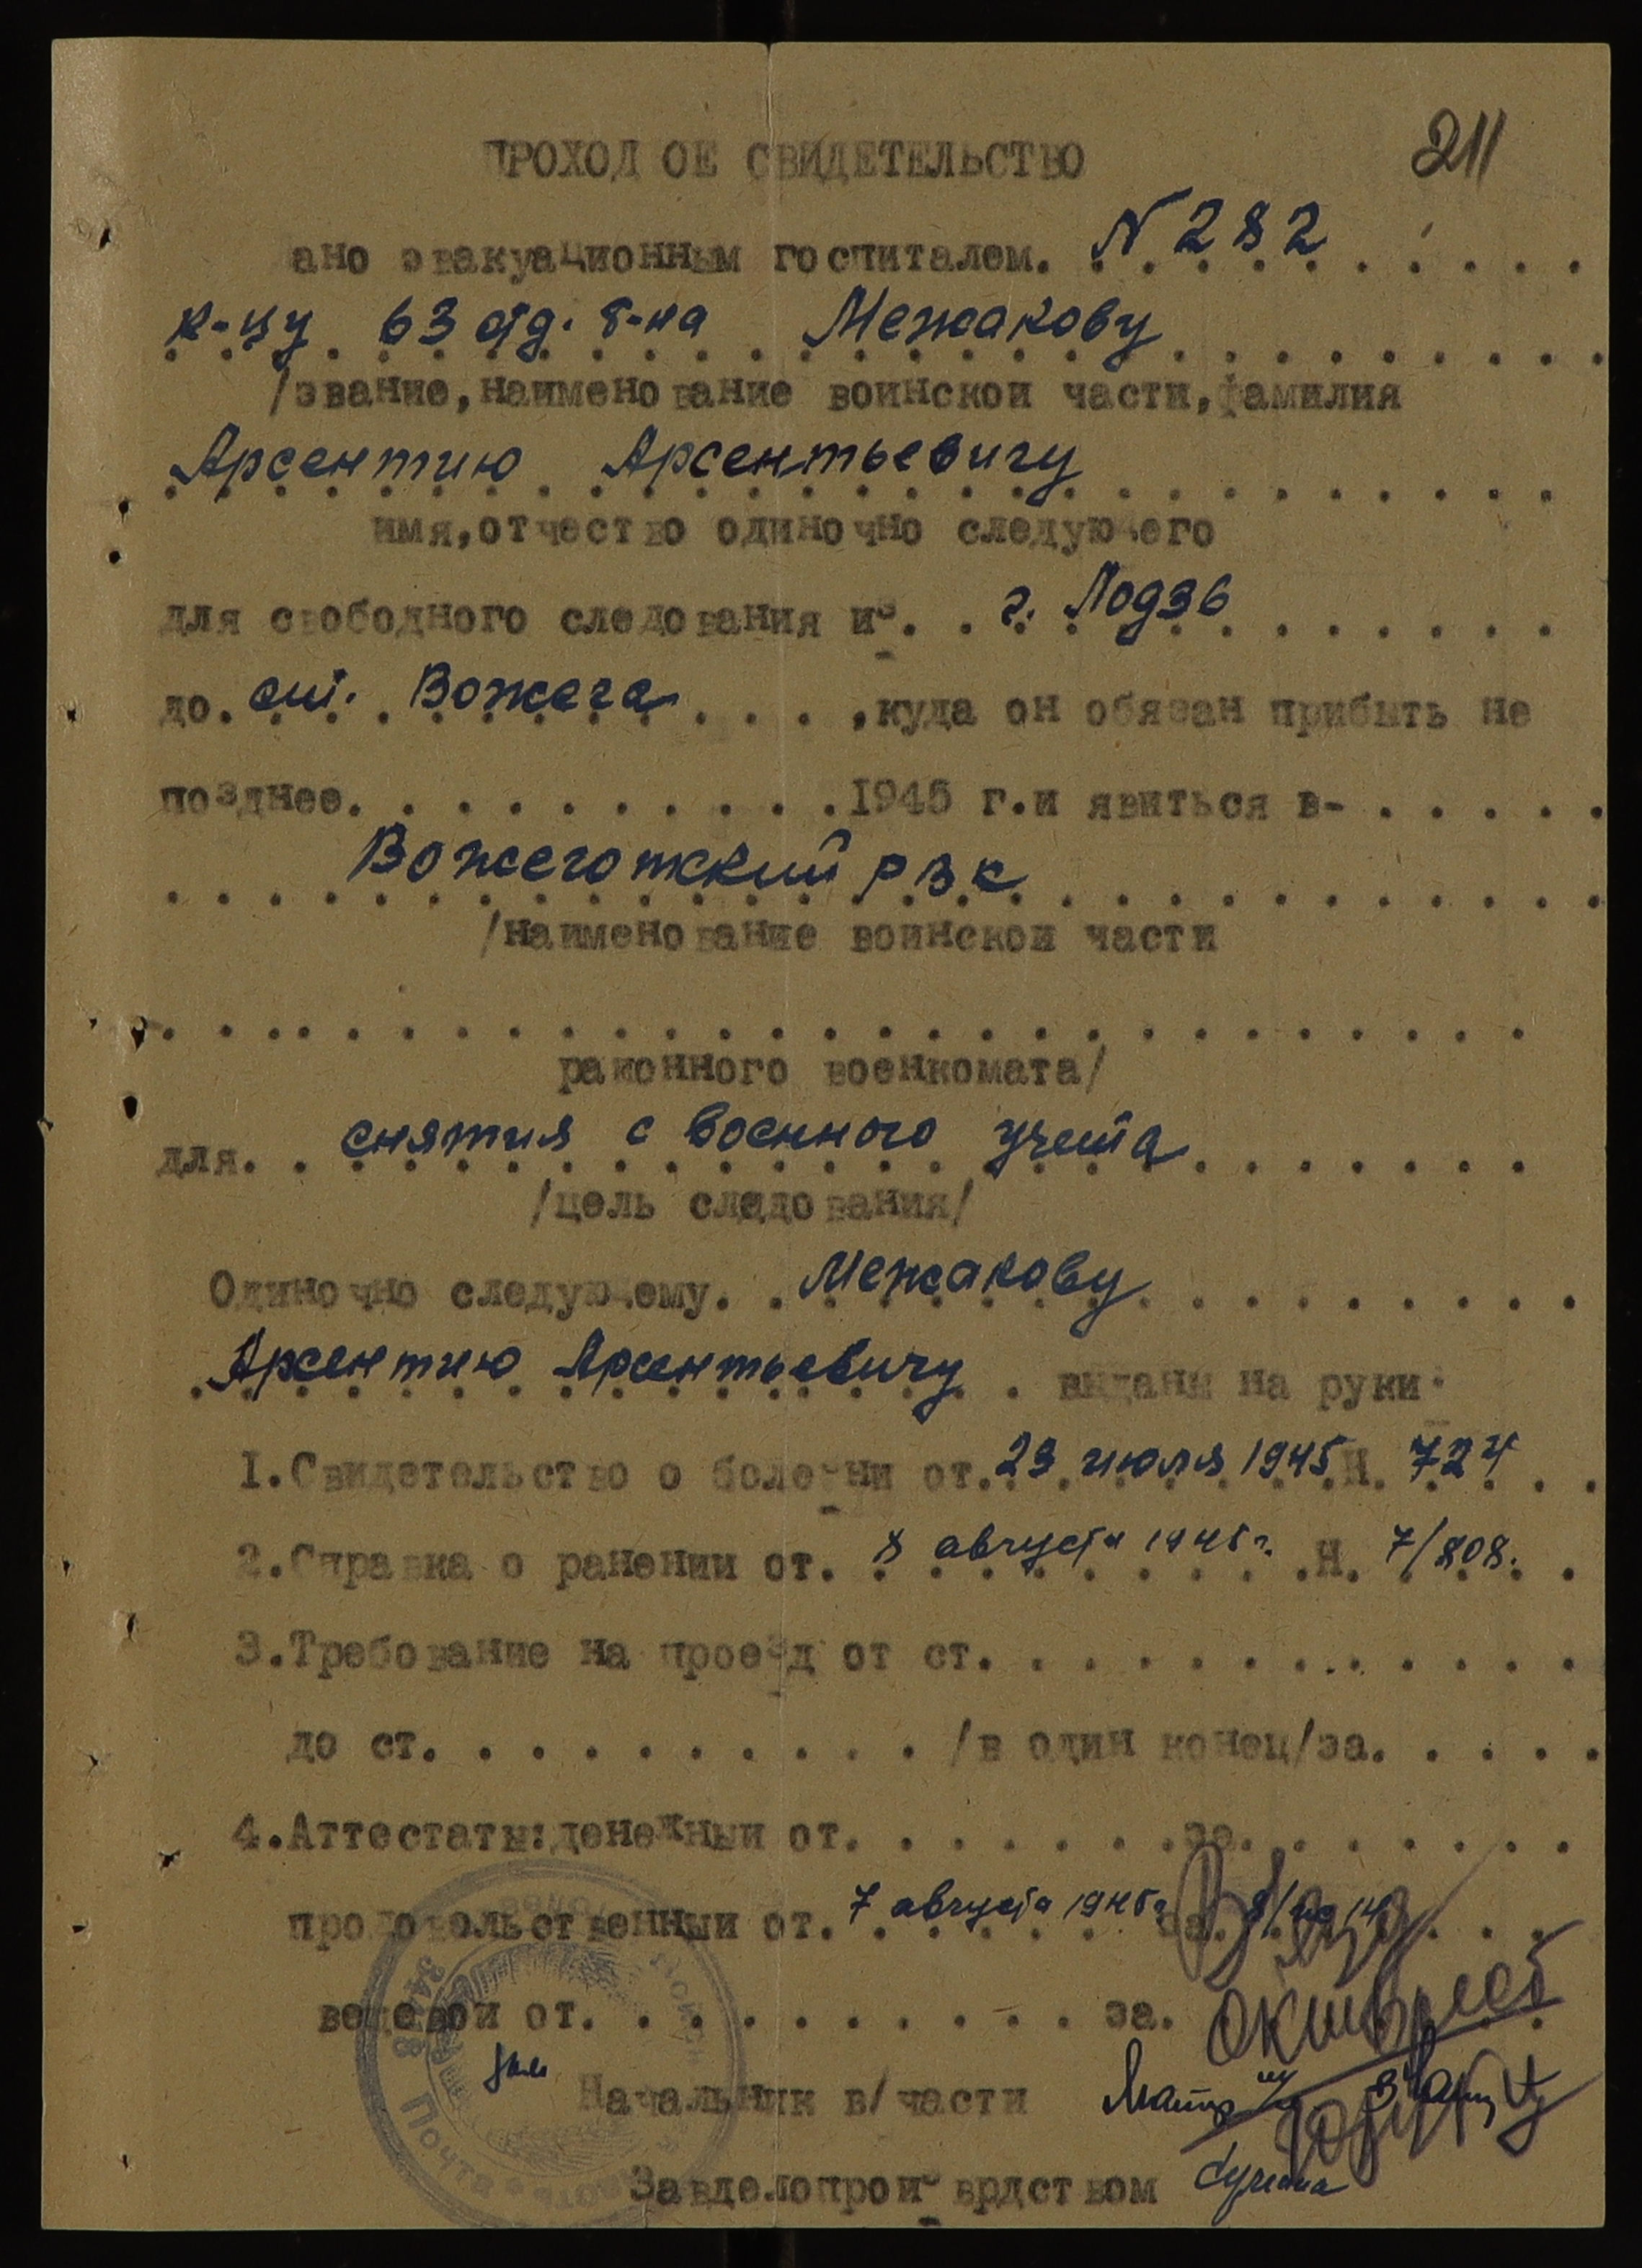 211
ПРОХОД ОЕ СВИДЕТЕЛЬСТВО
ано эвакуационным госпиталем. N 282
к-цу 63 отд. б-на Межакову
/звание, наименование воинской части, фамилия
Арсентию Арсентьевичу
имя, отчество одиночно следующего
для свободного следования из. . г. Лодзь
до. ст. Вожега . . . , куда он обязан прибыть не
позднее. . . . . . . . . . 1945 г. и явиться в- . . . . .
Вожеготский РВК
/наименование воинской части
районного военкомата/
для. . снятия с военного учета
/цель следования/
Одиночно следующему. . Межакову
Арсентию Арсентьевичу . выданы на руки:
1. Свидетельство о болезни от. 23 июля 1945 Н. 724
2. Справка о ранении от. 8 августа 1945 г. Н. 7/808.
3. Требование на проезд от ст. . . . . . . . . . . .
до ст. . . . . . . . . . . /в один конец/за. . . . .
4. Аттестаты: денежный от. . . . . . . за. . . . . . .
продовольственный от. 7 августа 1945 г за.
вещевой от. . . . . . . . . . за.
октябрь
Начальник в/части
Завделопроизврдством
Почта